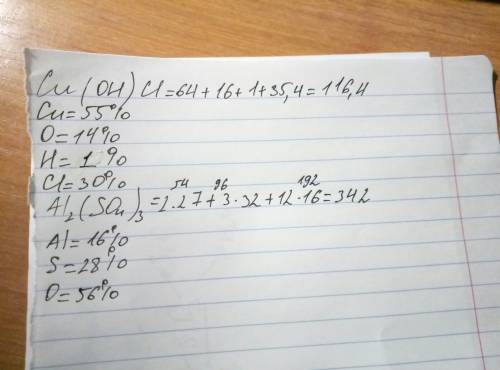 Cu(OH)Cl=64+16+1+35,4=116,4
Cu=55%
O=14%
H=1%
Cl=30%
54 96 192
Al2(SO4)3=2·27+3·32+12·16=342
Al=16%
S=28%
O=56%